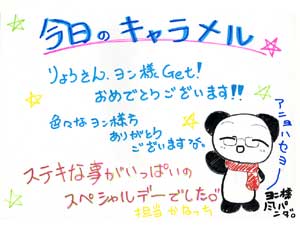 今日のキャラメル
りょうさん、ヨン様Get!
おめでとうございます!!
色々なヨン様方
ありがとう
ございますm。
ステキな事がいっぱいの
スペシャルデーでした♡
担当 かなっち
アニョハセヨー
ヨン様
風パンダ。